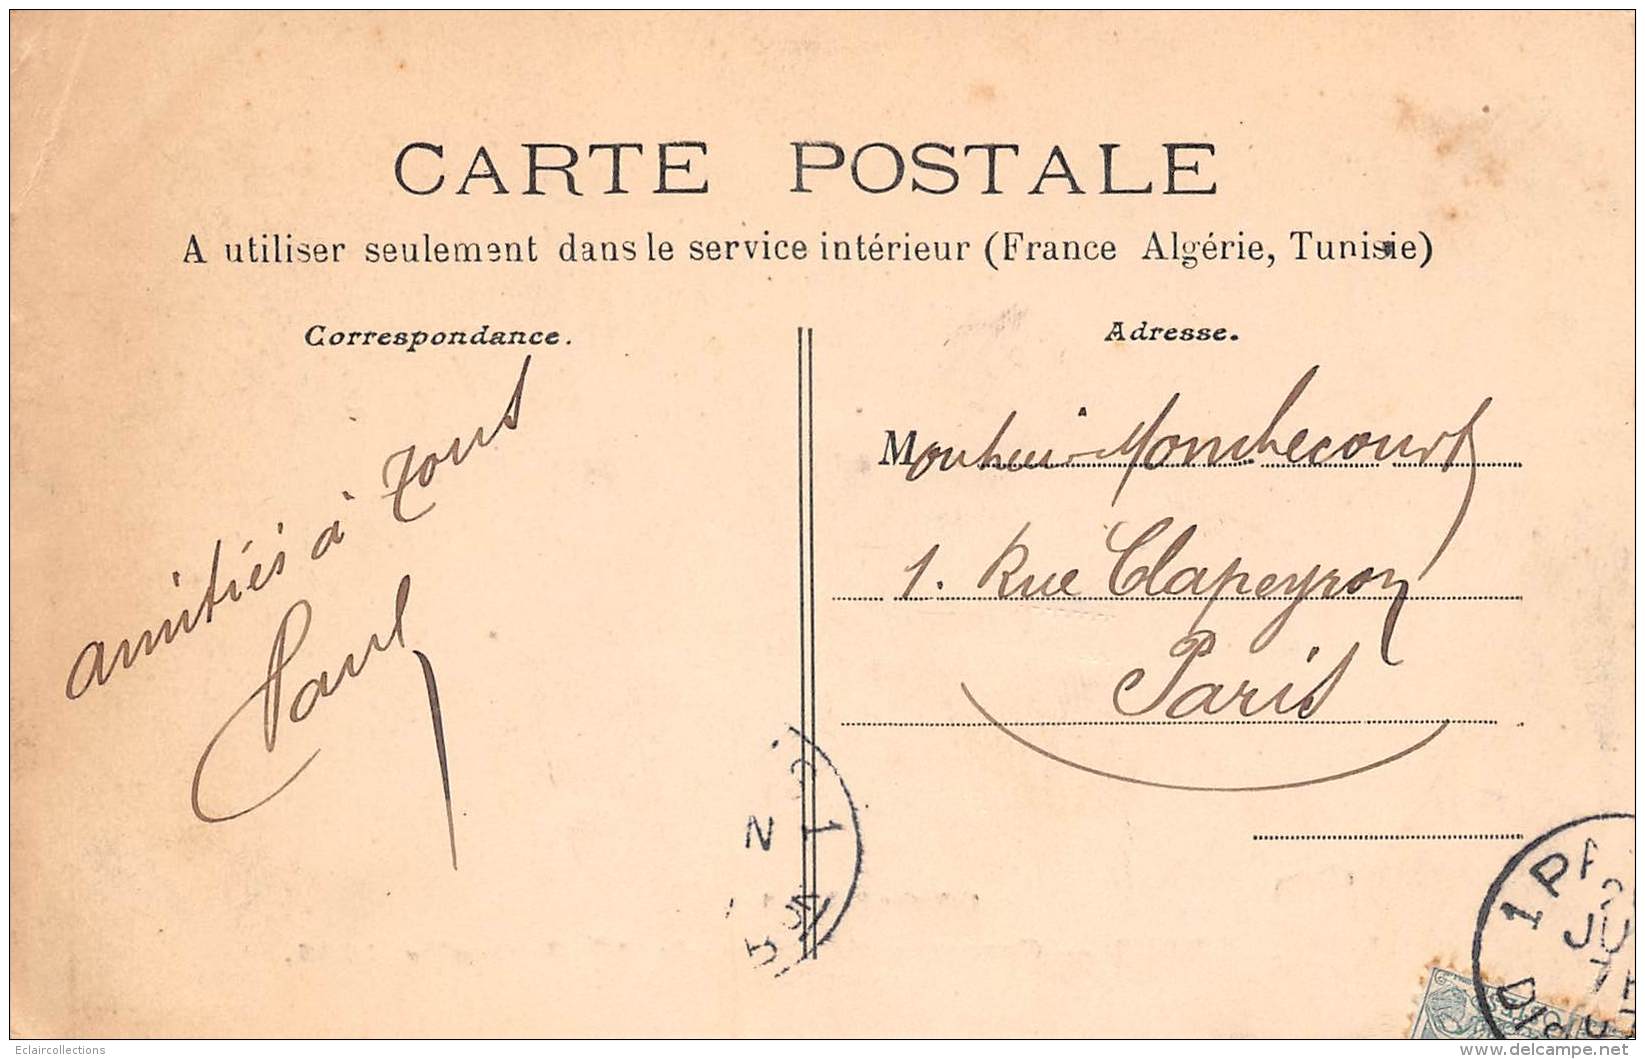 CARTE POSTALE
A utiliser seulement dans le service intérieur (France Algérie, Tunisie)
Correspondance.
amitiés à tous
Paul
Adresse.
Monsieur Monchecourt
1. Rue Clapeyron
Paris
Eclaircollections
delcampe.net